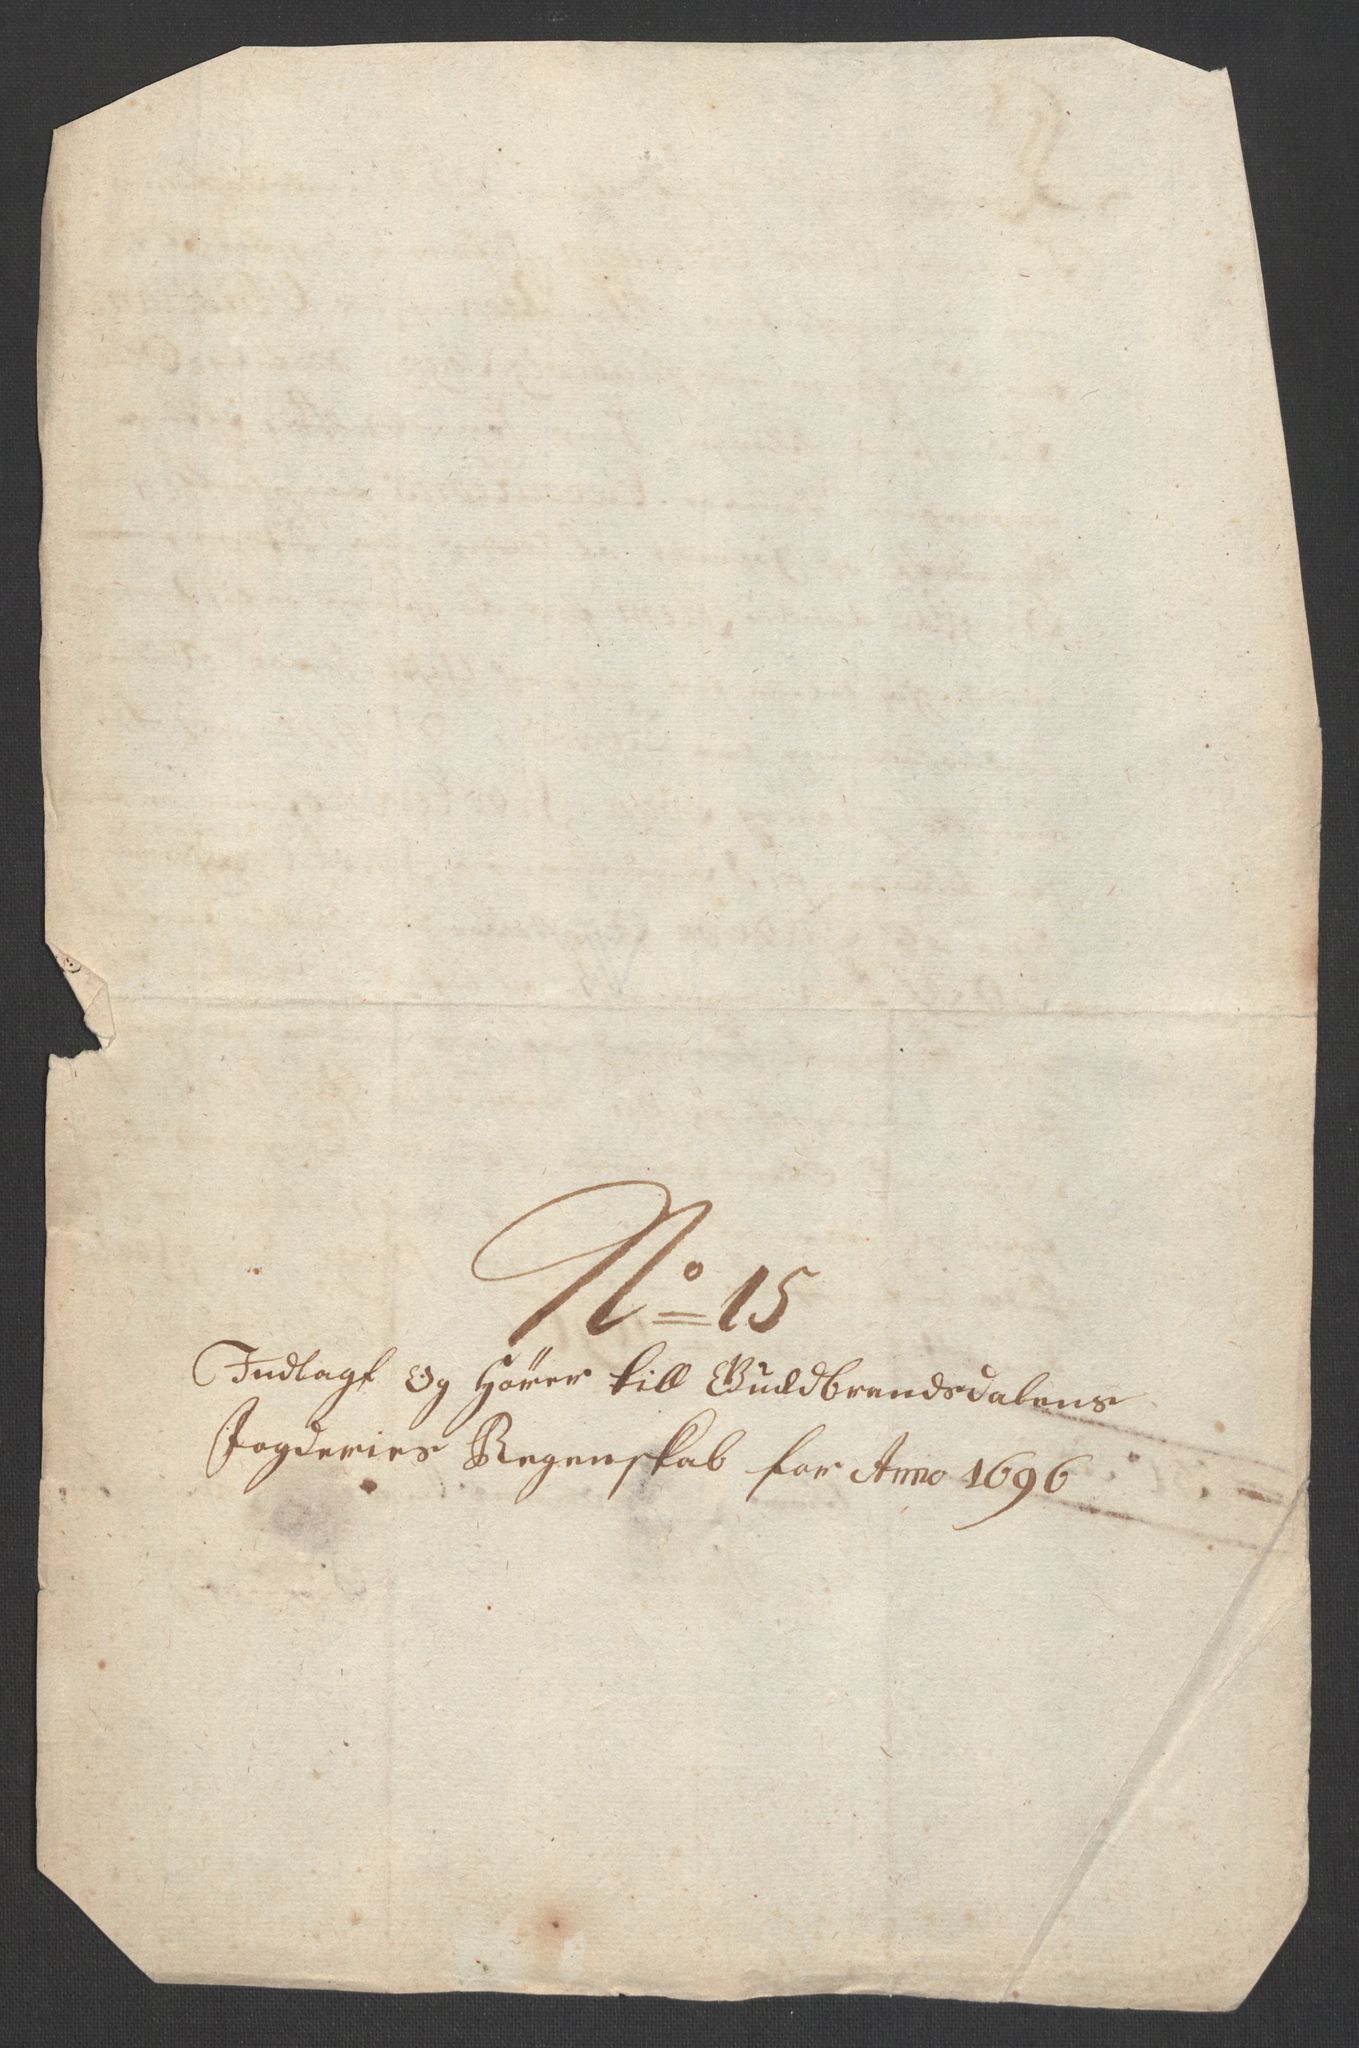 No 15
Indlagt og Hörer till Guldbrandsdalens
Fogderies Regenskab for Anno 1696